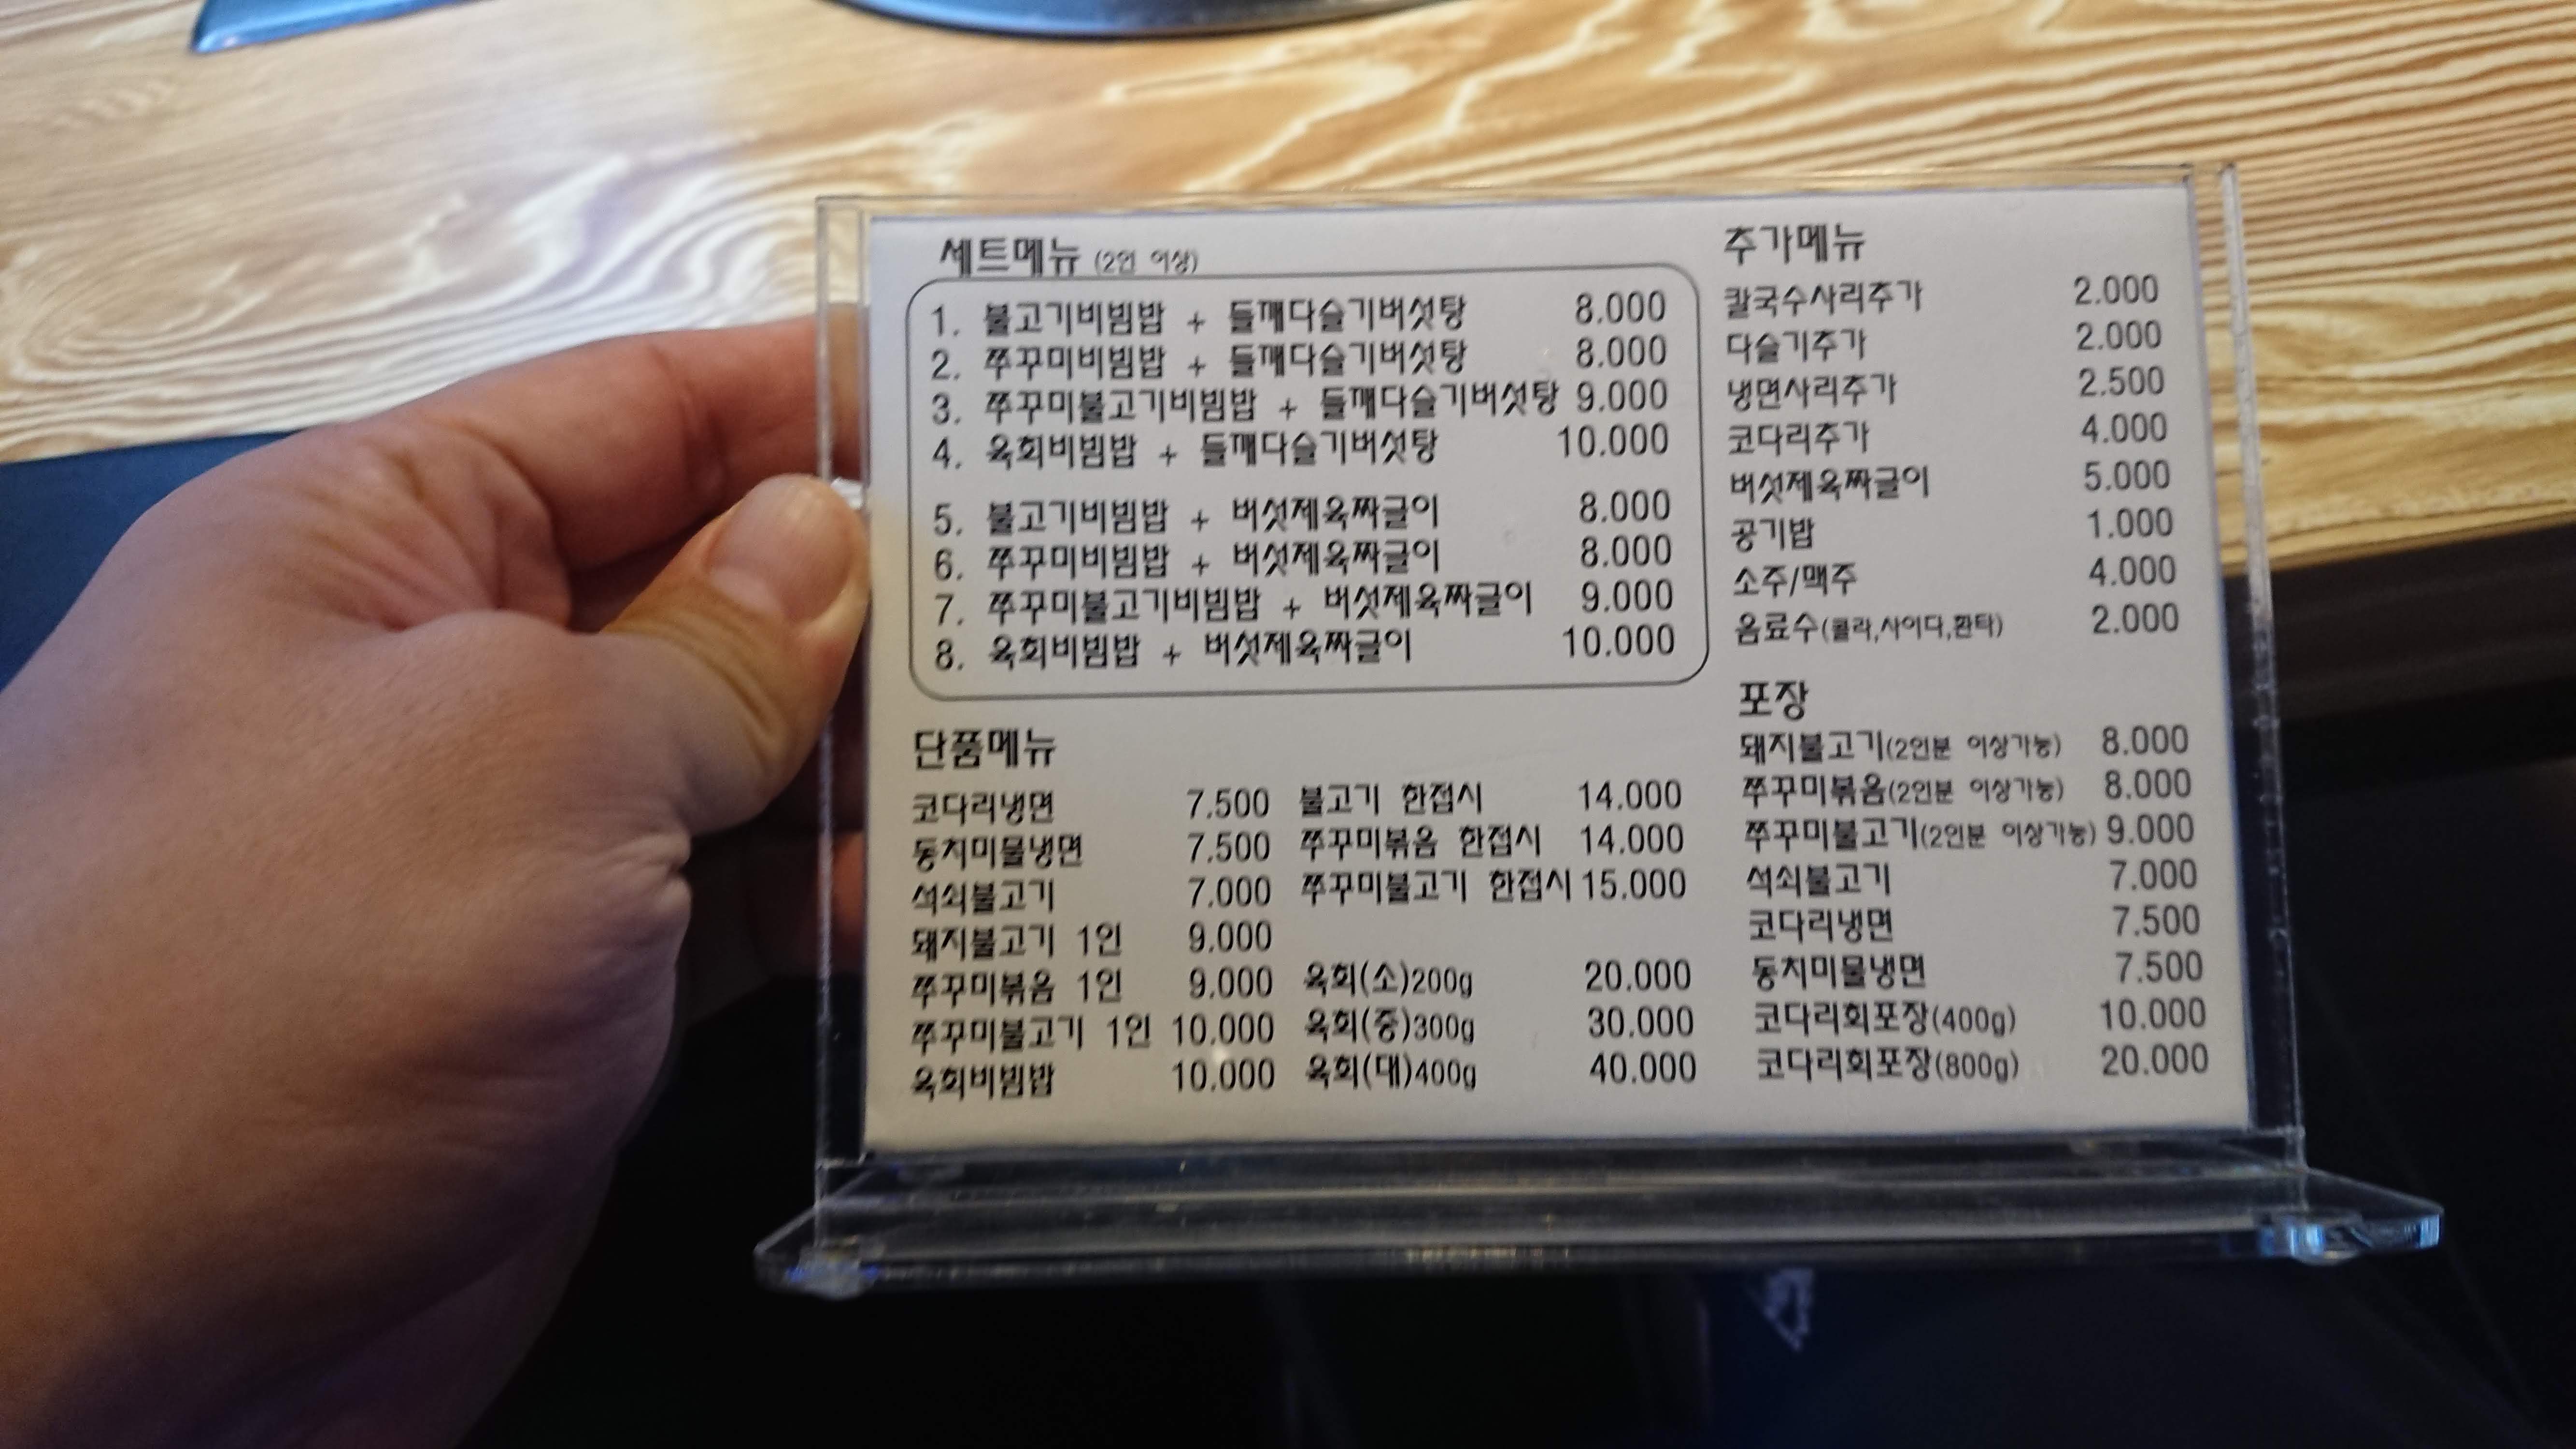 세트메뉴 (2인 이상)
1. 불고기비빔밥 + 들깨다슬기버섯탕 8.000
2. 쭈꾸미비빔밥 + 들깨다슬기버섯탕 8.000
3. 쭈꾸미불고기비빔밥 + 들깨다슬기버섯탕 9.000
4. 육회비빔밥 + 들깨다슬기버섯탕 10.000
5. 불고기비빔밥 + 버섯제육짜글이 8.000
6. 쭈꾸미비빔밥 + 버섯제육짜글이 8.000
7. 쭈꾸미불고기비빔밥 + 버섯제육짜글이 9.000
8. 육회비빔밥 + 버섯제육짜글이 10.000
단품메뉴
코다리냉면 7.500
동치미물냉면 7.500
석쇠불고기 7.000
돼지불고기 1인 9.000
쭈꾸미볶음 1인 9.000
쭈꾸미불고기 1인 10.000
육회비빔밥 10.000
불고기 한접시 14.000
쭈꾸미볶음 한접시 14.000
쭈꾸미불고기 한접시 15.000
육회(소)200g 20.000
육회(중)300g 30.000
육회(대)400g 40.000
추가메뉴
칼국수사리추가 2.000
다슬기추가 2.000
냉면사리추가 2.500
코다리추가 4.000
버섯제육짜글이 5.000
공기밥 1.000
소주/맥주 4.000
음료수(콜라,사이다,환타) 2.000
포장
돼지불고기(2인분 이상가능) 8.000
쭈꾸미볶음(2인분 이상가능) 8.000
쭈꾸미불고기(2인분 이상가능) 9.000
석쇠불고기 7.000
코다리냉면 7.500
동치미물냉면 7.500
코다리회포장(400g) 10.000
코다리회포장(800g) 20.000